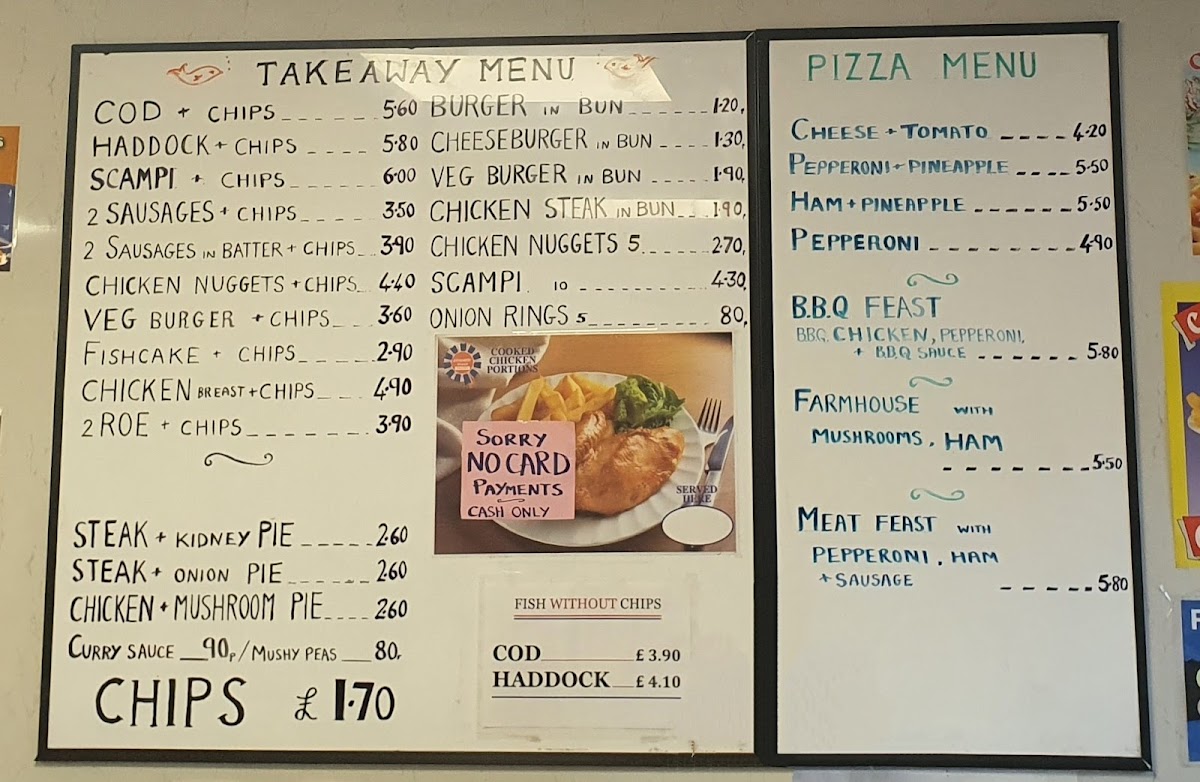 TAKEAWAY MENU
COD + CHIPS ______ 5·60
HADDOCK + CHIPS ____ 5·80
SCAMPI + CHIPS ______ 6·00
2 SAUSAGES + CHIPS ____ 3·50
2 SAUSAGES IN BATTER + CHIPS __ 3·90
CHICKEN NUGGETS + CHIPS __ 4·40
VEG BURGER + CHIPS ___ 3·60
FISHCAKE + CHIPS _____ 2·90
CHICKEN BREAST + CHIPS ___ 4·90
2 ROE + CHIPS _______ 3·90
STEAK + KIDNEY PIE _____ 2·60
STEAK + ONION PIE ______ 2·60
CHICKEN + MUSHROOM PIE ____ 2·60
CURRY SAUCE __ 90p / MUSHY PEAS ___ 80,
CHIPS £ 1·70
BURGER IN BUN ______ 1·20,
CHEESEBURGER IN BUN ____ 1·30,
VEG BURGER IN BUN _____ 1·90,
CHICKEN STEAK IN BUN ___ 1·90,
CHICKEN NUGGETS 5 ______ 2·70,
SCAMPI 10 _________ 4·30,
ONION RINGS 5 _________ 80,
COOKED
CHICKEN
PORTIONS
SORRY
NO CARD
PAYMENTS
CASH ONLY
SERVED
HERE
FISH WITHOUT CHIPS
COD ________ £ 3.90
HADDOCK ___ £ 4.10
PIZZA MENU
CHEESE + TOMATO ---- 4·20
PEPPERONI + PINEAPPLE ---- 5·50
HAM + PINEAPPLE ------ 5·50
PEPPERONI -------- 4·90
B.B.Q FEAST
BBQ. CHICKEN, PEPPERONI,
+ BBQ SAUCE ------ 5·80
FARMHOUSE WITH
MUSHROOMS, HAM
-------- 5·50
MEAT FEAST WITH
PEPPERONI, HAM
+ SAUSAGE ----- 5·80